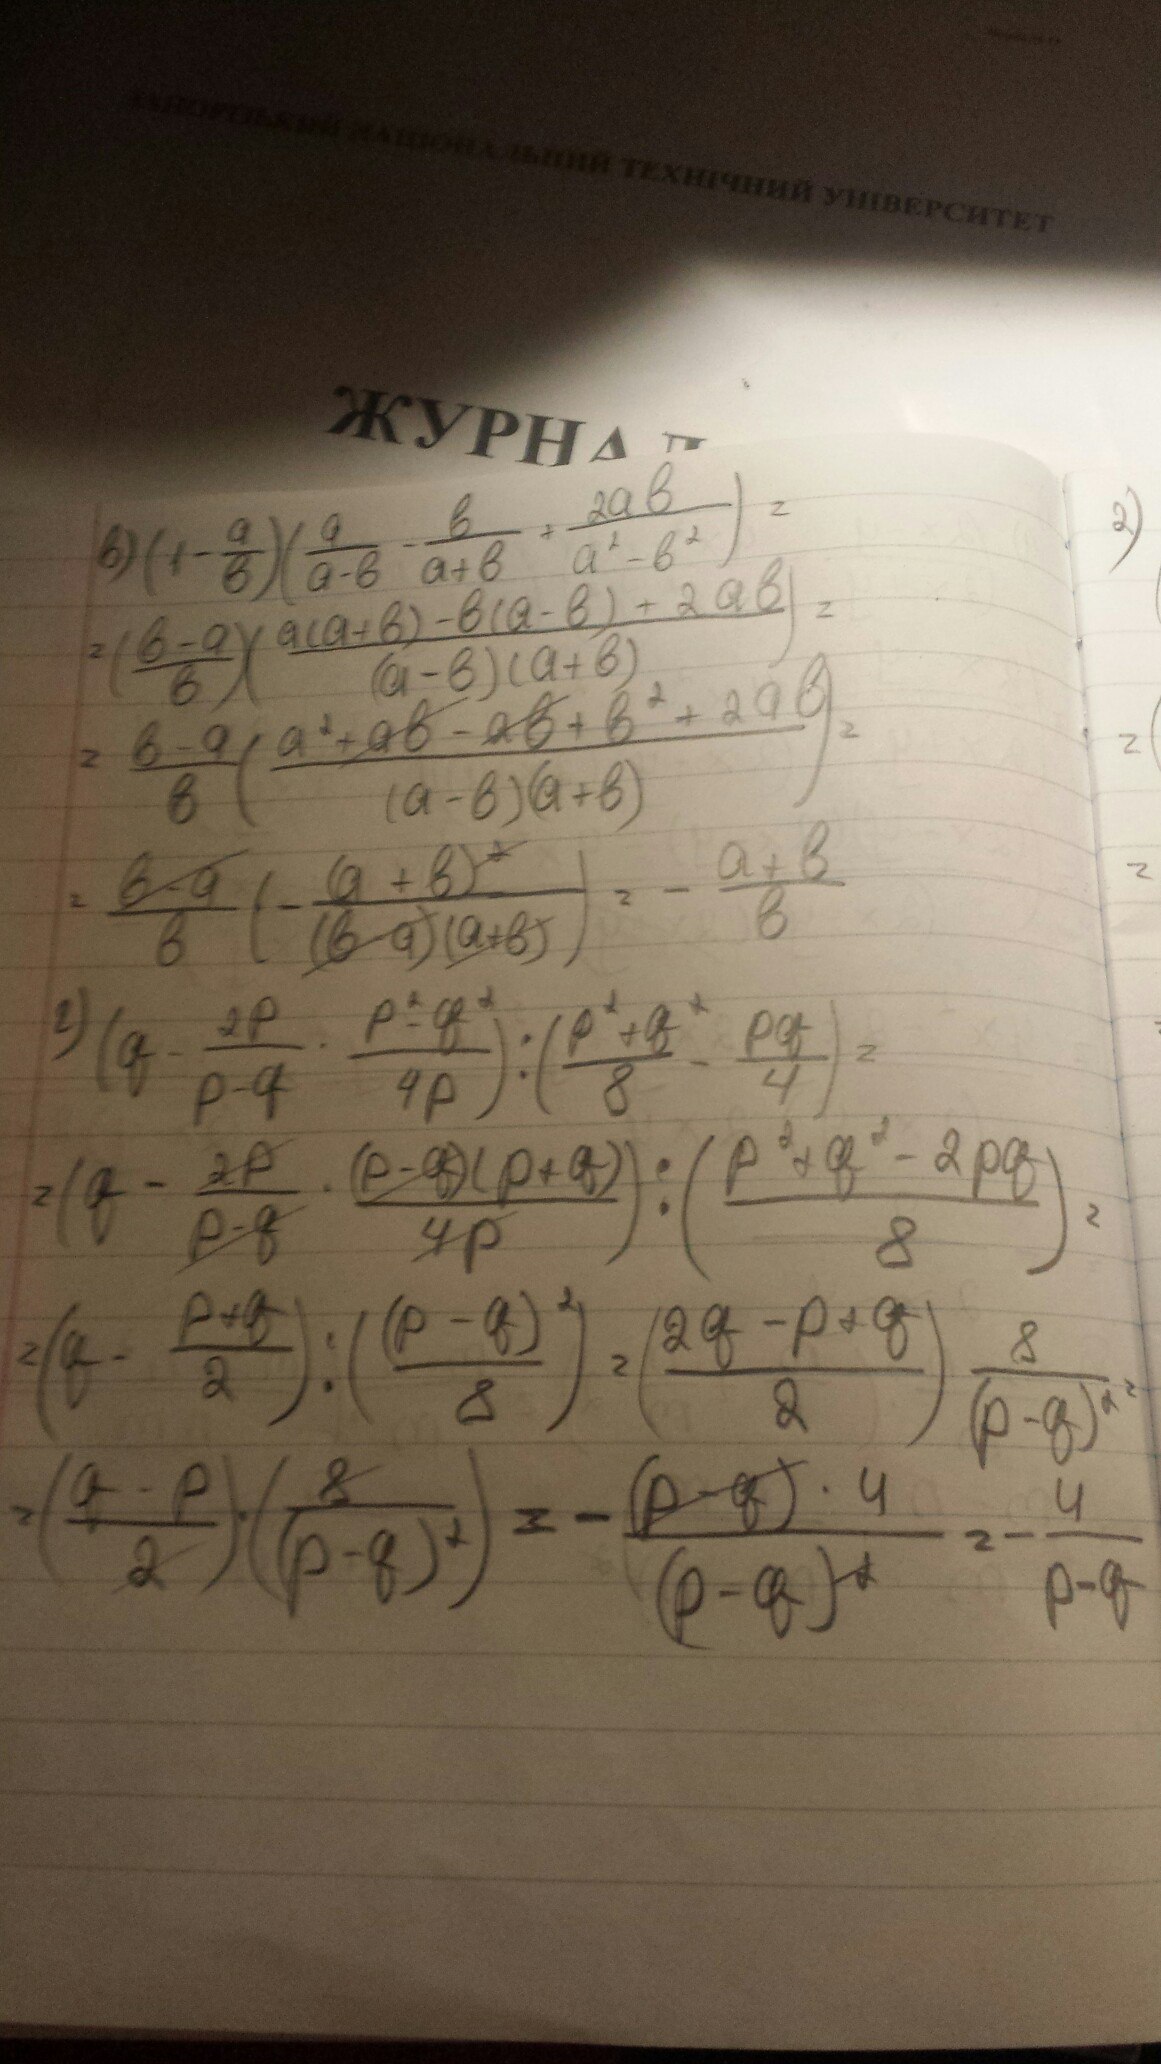 ЗАПОРІЗЬКИЙ НАЦІОНАЛЬНИЙ ТЕХНІЧНИЙ УНІВЕРСИТЕТ
ЖУРНАЛ
в) (1 - a/b)(a/(a-b) - b/(a+b) + 2ab/(a²-b²)) =
= ((b-a)/b)((a(a+b) - b(a-b) + 2ab)/((a-b)(a+b))) =
= (b-a)/b ((a²+ab-ab+b²+2ab)/((a-b)(a+b))) =
= (b-a)/b (-(a+b)²/((b-a)(a+b))) = - (a+b)/b
г) (q - 2p/(p-q) · (p²-q²)/4p) : ((p²+q²)/8 - pq/4) =
= (q - 2p/(p-q) · (p-q)(p+q)/4p) : ((p²+q²-2pq)/8) =
= (q - (p+q)/2) : ((p-q)²/8) = ((2q-p+q)/2) 8/(p-q)² =
= ((q-p)/2) · (8/(p-q)²) = - (p-q)·4/(p-q)² = - 4/(p-q)
2)
(
=
=